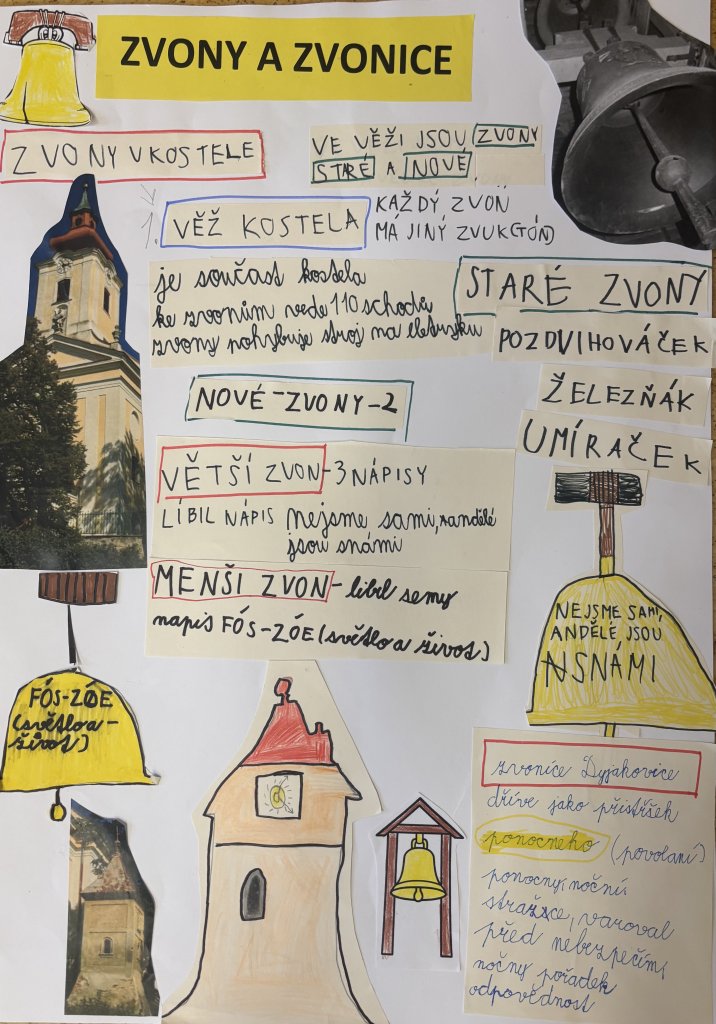 ZVONY A ZVONICE
ZVONY V KOSTELE
VE VĚŽI JSOU ZVONY
STARÉ A NOVÉ
1. VĚŽ KOSTELA
KAŽDÝ ZVON
MÁ JINÝ ZVUK(TÓN)
je součast kostela
ke zvonům vede 110 schodů
zvony pohybuje stroj na eletryku
STARÉ ZVONY
POZDVIHOVÁČEK
ŽELEZŇÁK
UMÍRAČEK
NOVÉ-ZVONY-2
VĚTŠÍ ZVON-3 NÁPISY
LÍBIL NÁPIS nejsme sami, andělé
jsou snámi
MENŠI ZVON-libil semy
napis FÓS-ZÓE (světlo a život)
NEJSME SAMI,
ANDĚLÉ JSOU
SNÁMI
FÓS-ZÓE
(světlo a-
život)
zvonice Dyjakovice
dříve jako přistřšek
ponocneho (povolaní)
ponocny, noční
stražce, varoval
před nebezpečím,
nočny pořadek
odpovědnost